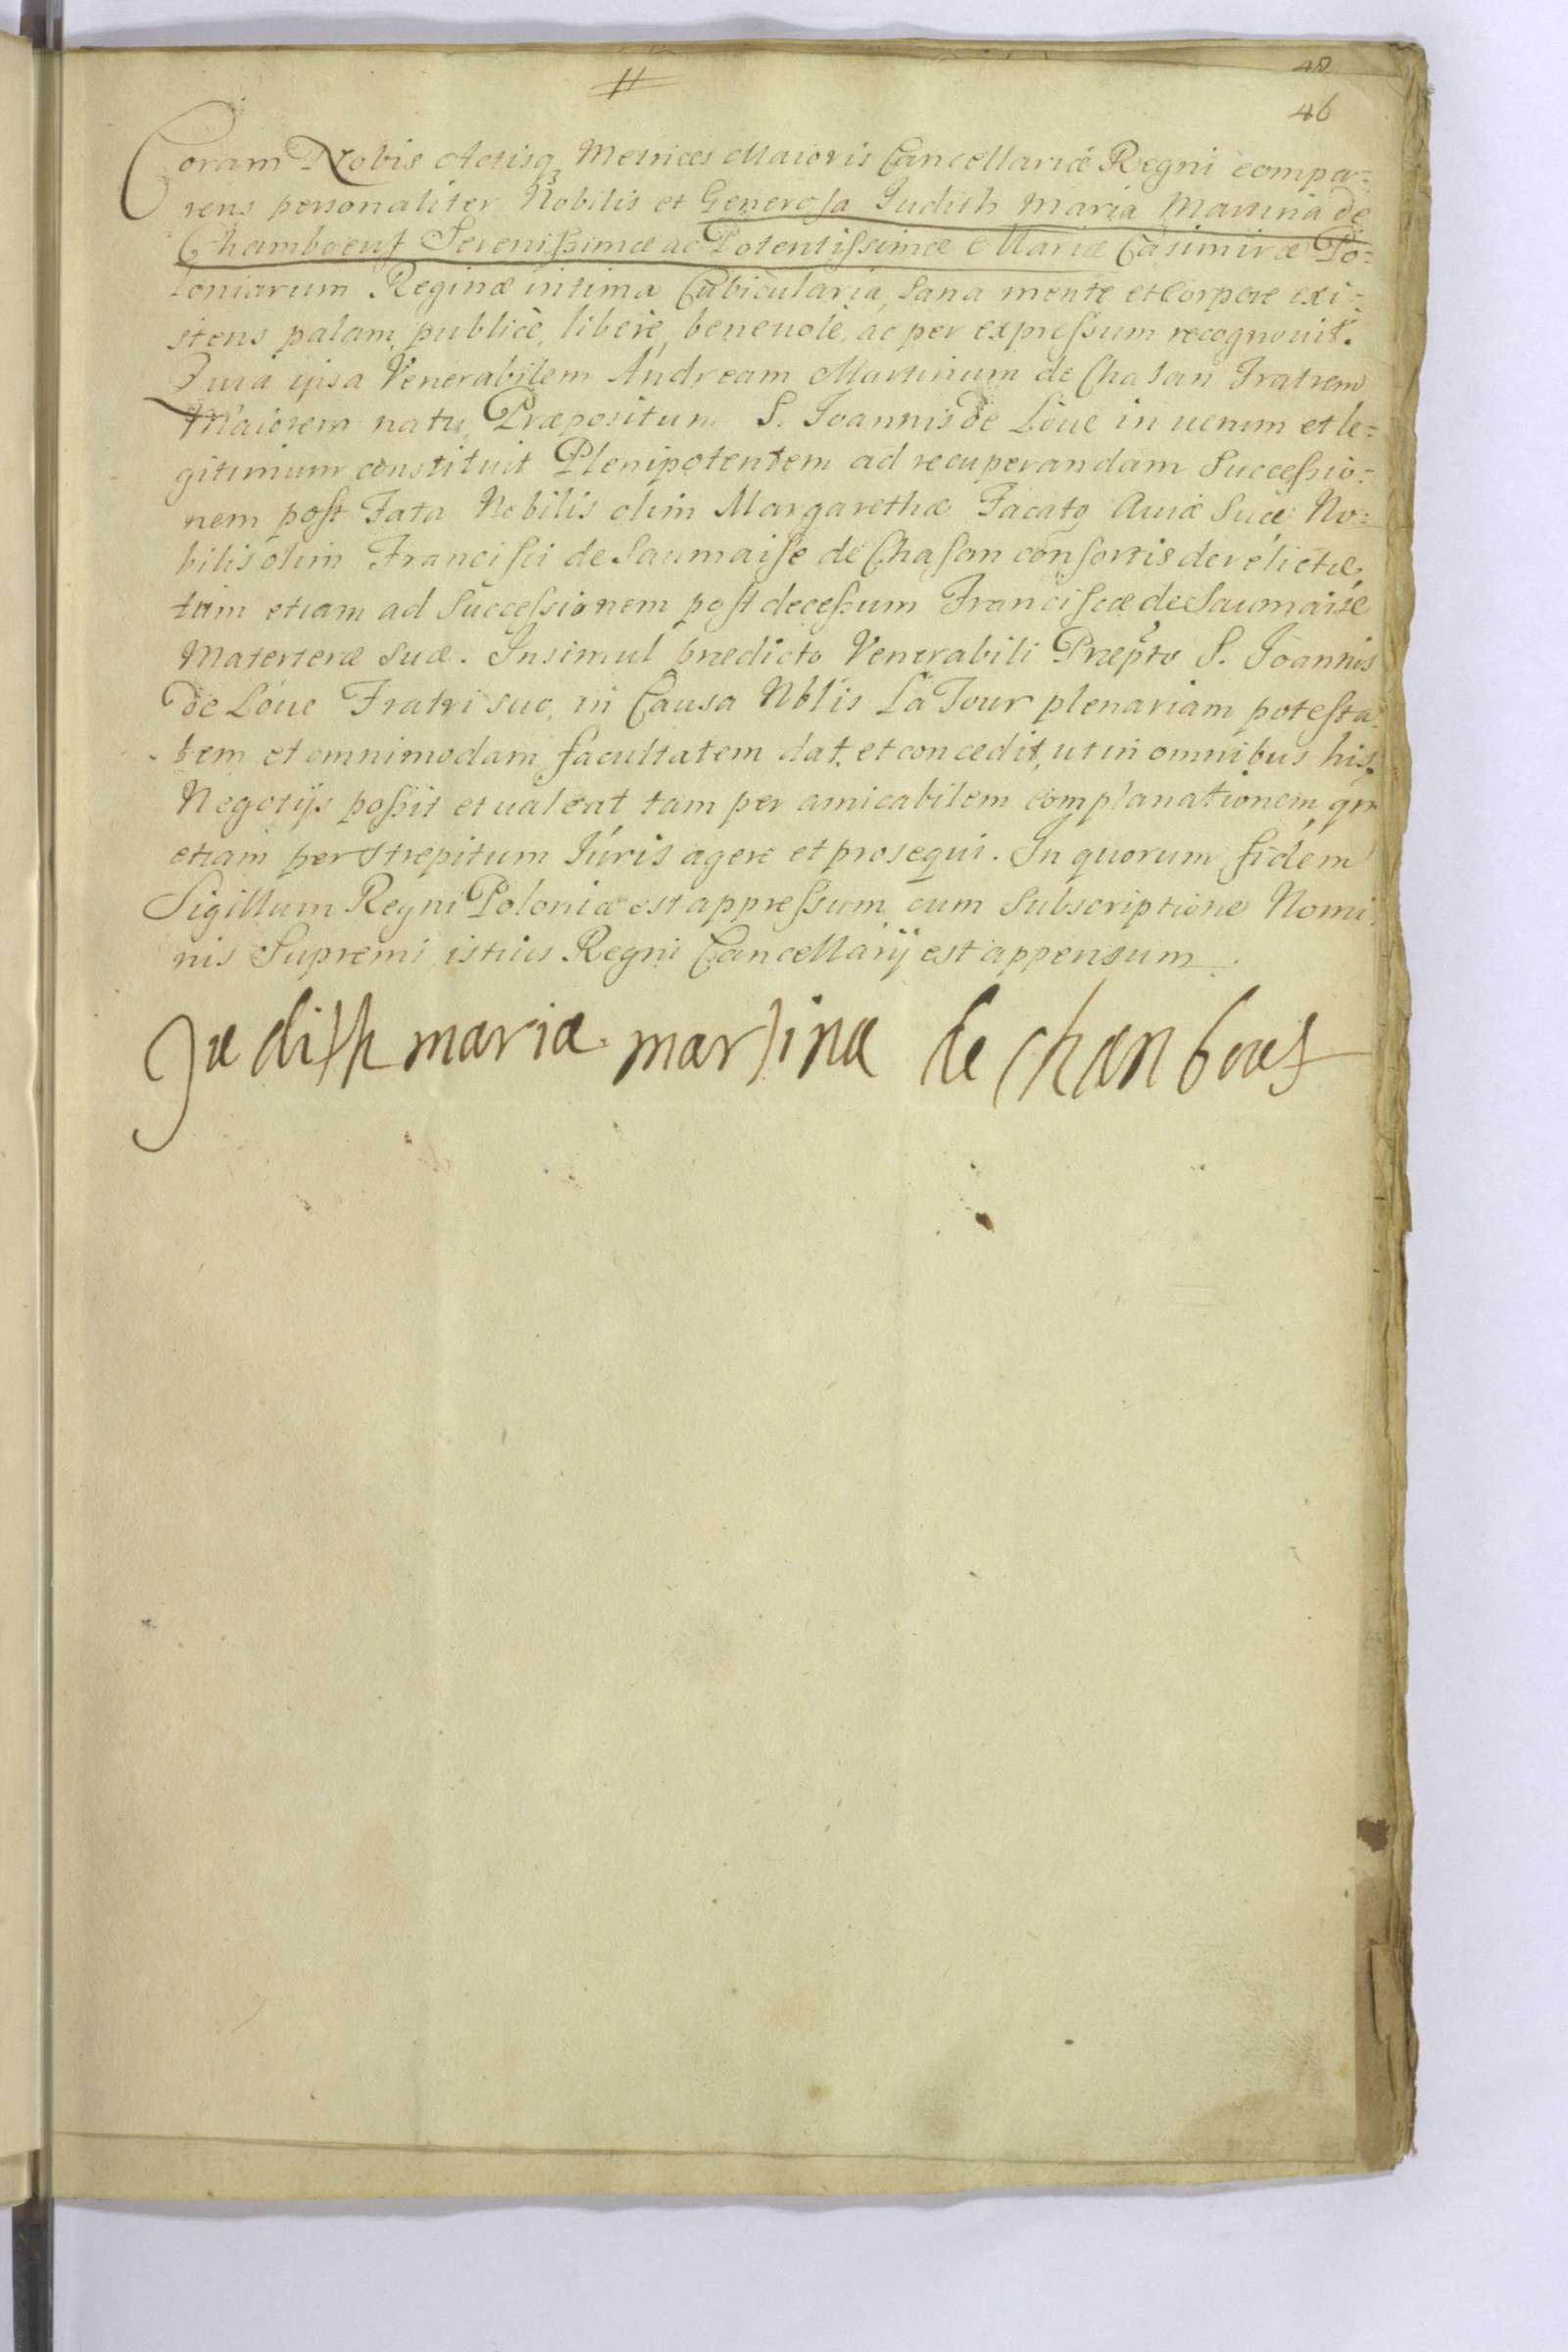 48
46
Coram Nobis Actisq3 Metrices Maioris Cancellariæ Regni compa=
rens personaliter Nobilis et Generosa Iudith Maria Martina de
Chamboeuf Serenissimæ ac Potentissimæ Mariæ Casimiræ Po=
loniarum Reginæ intima Cubicularia, Sana mente et Corpore exi=
stens palam, publicè, liberè, beneuolè, ac per expressum recognouit.
Quia ipsa Venerabilem Andream Martinum de Chasan Fratrem
Maiorem natu, Præpositum S. Joannis de Lôue in uerum et le=
gitimum constituit Plenipotentem ad recuperandam Successio=
nem post Fata Nobilis olim Margarethæ Jacato Auiæ Suæ No=
bilis olim Francisci de Saumaise de Chasan consortis derelictæ,
tùm etiam ad Successionem post decessum Franciscæ de Saumaise
Materteræ Suæ. Insimul prædicto Venerabili Præpto S. Joannis
de Lôue Fratri suo, in Causa Nblis La Tour plenariam potesta=
tem et omnimodam facultatem dat, et concedit, ut in omnibus his
Negotijs possit et ualeat tam per amicabilem complanationem, qm
etiam per strepitum Iúris agere et prosequi. In quorum fidem
Sigillum Regni Poloniæ est appressum cum Subscriptione Nomi=
nis Supremi istius Regni Cancellarij est appensum.
Judith maria martina de chanbeuf